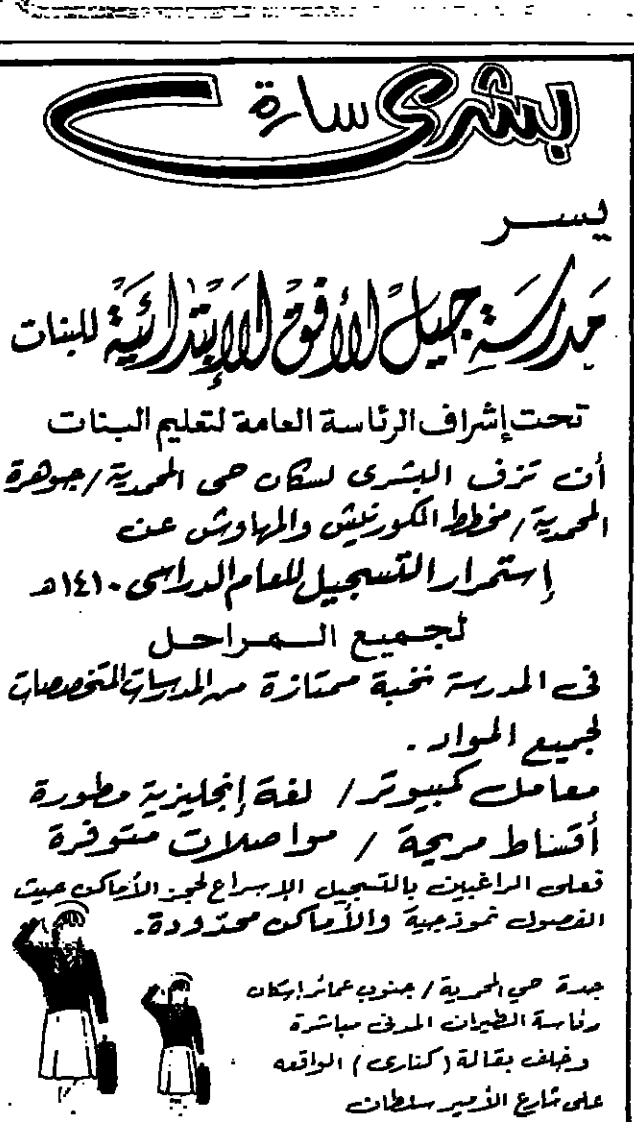 بشرى سارة
يسر
مدرسة جيل الأفق الإبتدائية للبنات
تحت إشراف الرئاسة العامة لتعليم البنات
أن تزف البشرى لسكان حى المحمدية / جوهرة
المحمدية / مخطط الكورنيش والمهاوش عن
إستمرار التسجيل للعام الدراسى ١٤١٠هـ
لجميع المراحل
فى المدرسة نخبة ممتازة من المدرسات المتخصصات
لجميع المواد .
معامل كمبيوتر / لغة إنجليزية مطورة
أقساط مريحة / مواصلات متوفرة
فعلى الراغبين بالتسجيل الإسراع لحجز الأماكن حيث
الفصول نموذجية والأماكن محدودة.
جدة حي المحمدية / جنوب عمائر إسكان
رئاسة الطيران المدنى مباشرة
وخلف بقالة (كنارى) الواقعه
على شارع الأمير سلطان